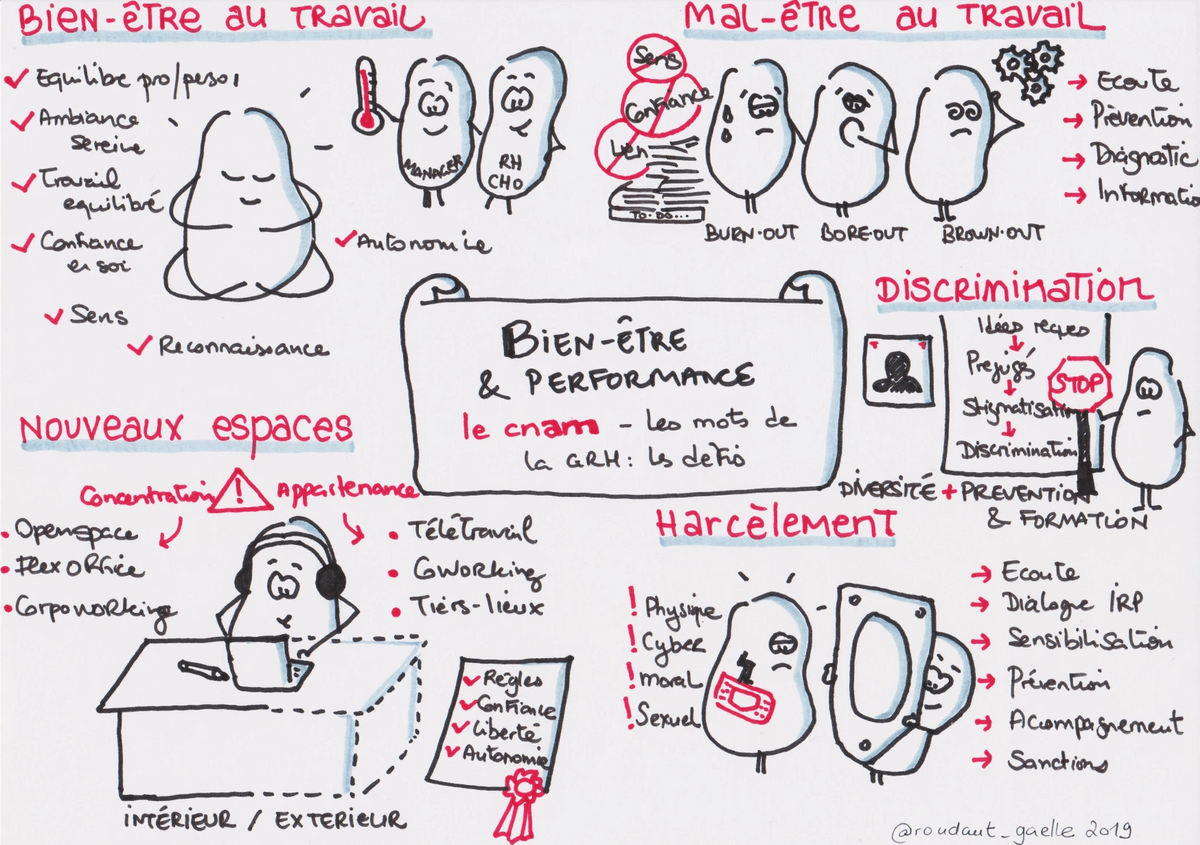 BIEN-ÊTRE AU TRAVAIL
Equilibe pro/perso
Ambiance
sereine
Travail
equilibré
Confiance
en soi
Sens
Reconnaissance
Autonomie
MANAGER
RH
CHO
MAL-ÊTRE AU TRAVAIL
Sens
Confiance
Lien
TO-DO...
BURN-OUT
BORE-OUT
BROWN-OUT
Ecoute
Prévention
Diagnostic
Informatio
BIEN-ÊTRE
& PERFORMANCE
le cnam - Les mots de
la GRH : les défis
DISCRIMINATION
Idées reçues
Préjugés
Stigmatisation
Discrimination
STOP
DIVERSITÉ + PREVENTION
& FORMATION
NOUVEAUX ESPACES
Concentration ! Appartenance
Openspace
Flex Office
Corpoworking
Télétravail
Coworking
Tiers-lieux
Règles
Confiance
Liberté
Autonomie
INTÉRIEUR / EXTERIEUR
HARCÈLEMENT
! Physique
! Cyber
! Moral
! Sexuel
Ecoute
Dialogue IRP
Sensibilisation
Prévention
Accompagnement
Sanctions
@roudaut_gaelle 2019